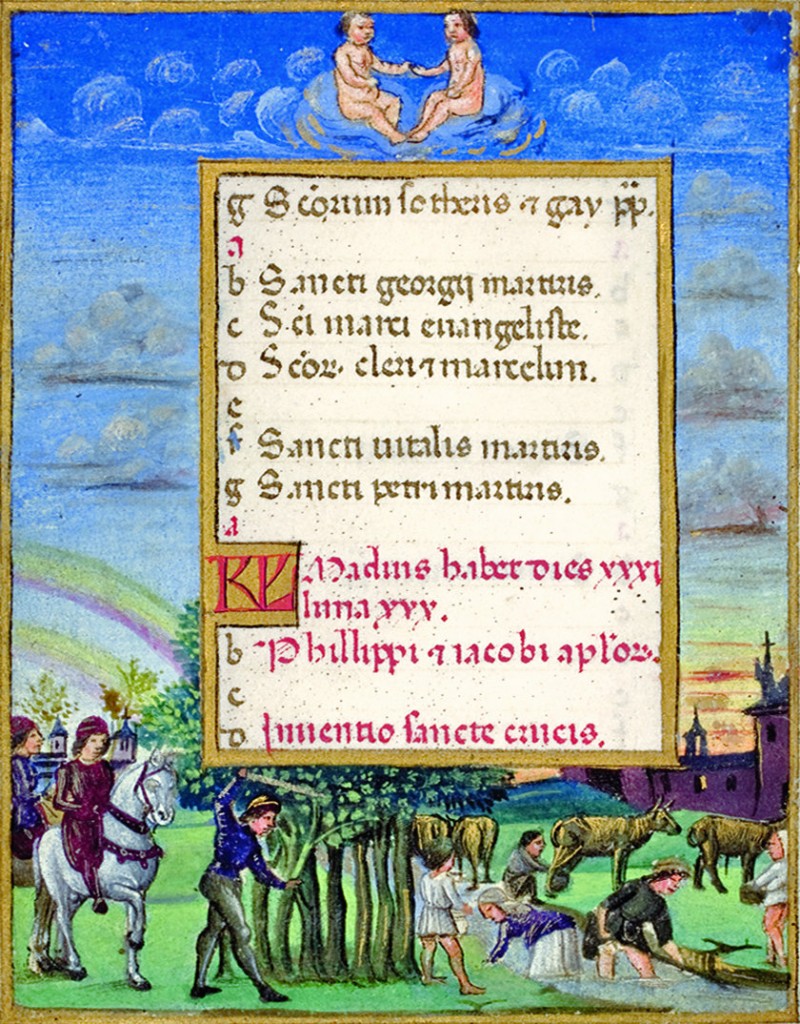 g Scorum sotheris ⁊ gay pp.
a
b Sancti georgij martiris.
c Sci marci euangeliste.
d Scor. cleti ⁊ marcelini.
e
f Sancti uitalis martiris.
g Sancti petri martiris.
a
KL Madius habet dies xxxi
luna xxx.
b Phillippi ⁊ iacobi aplor.
c
d Inuentio sancte crucis.